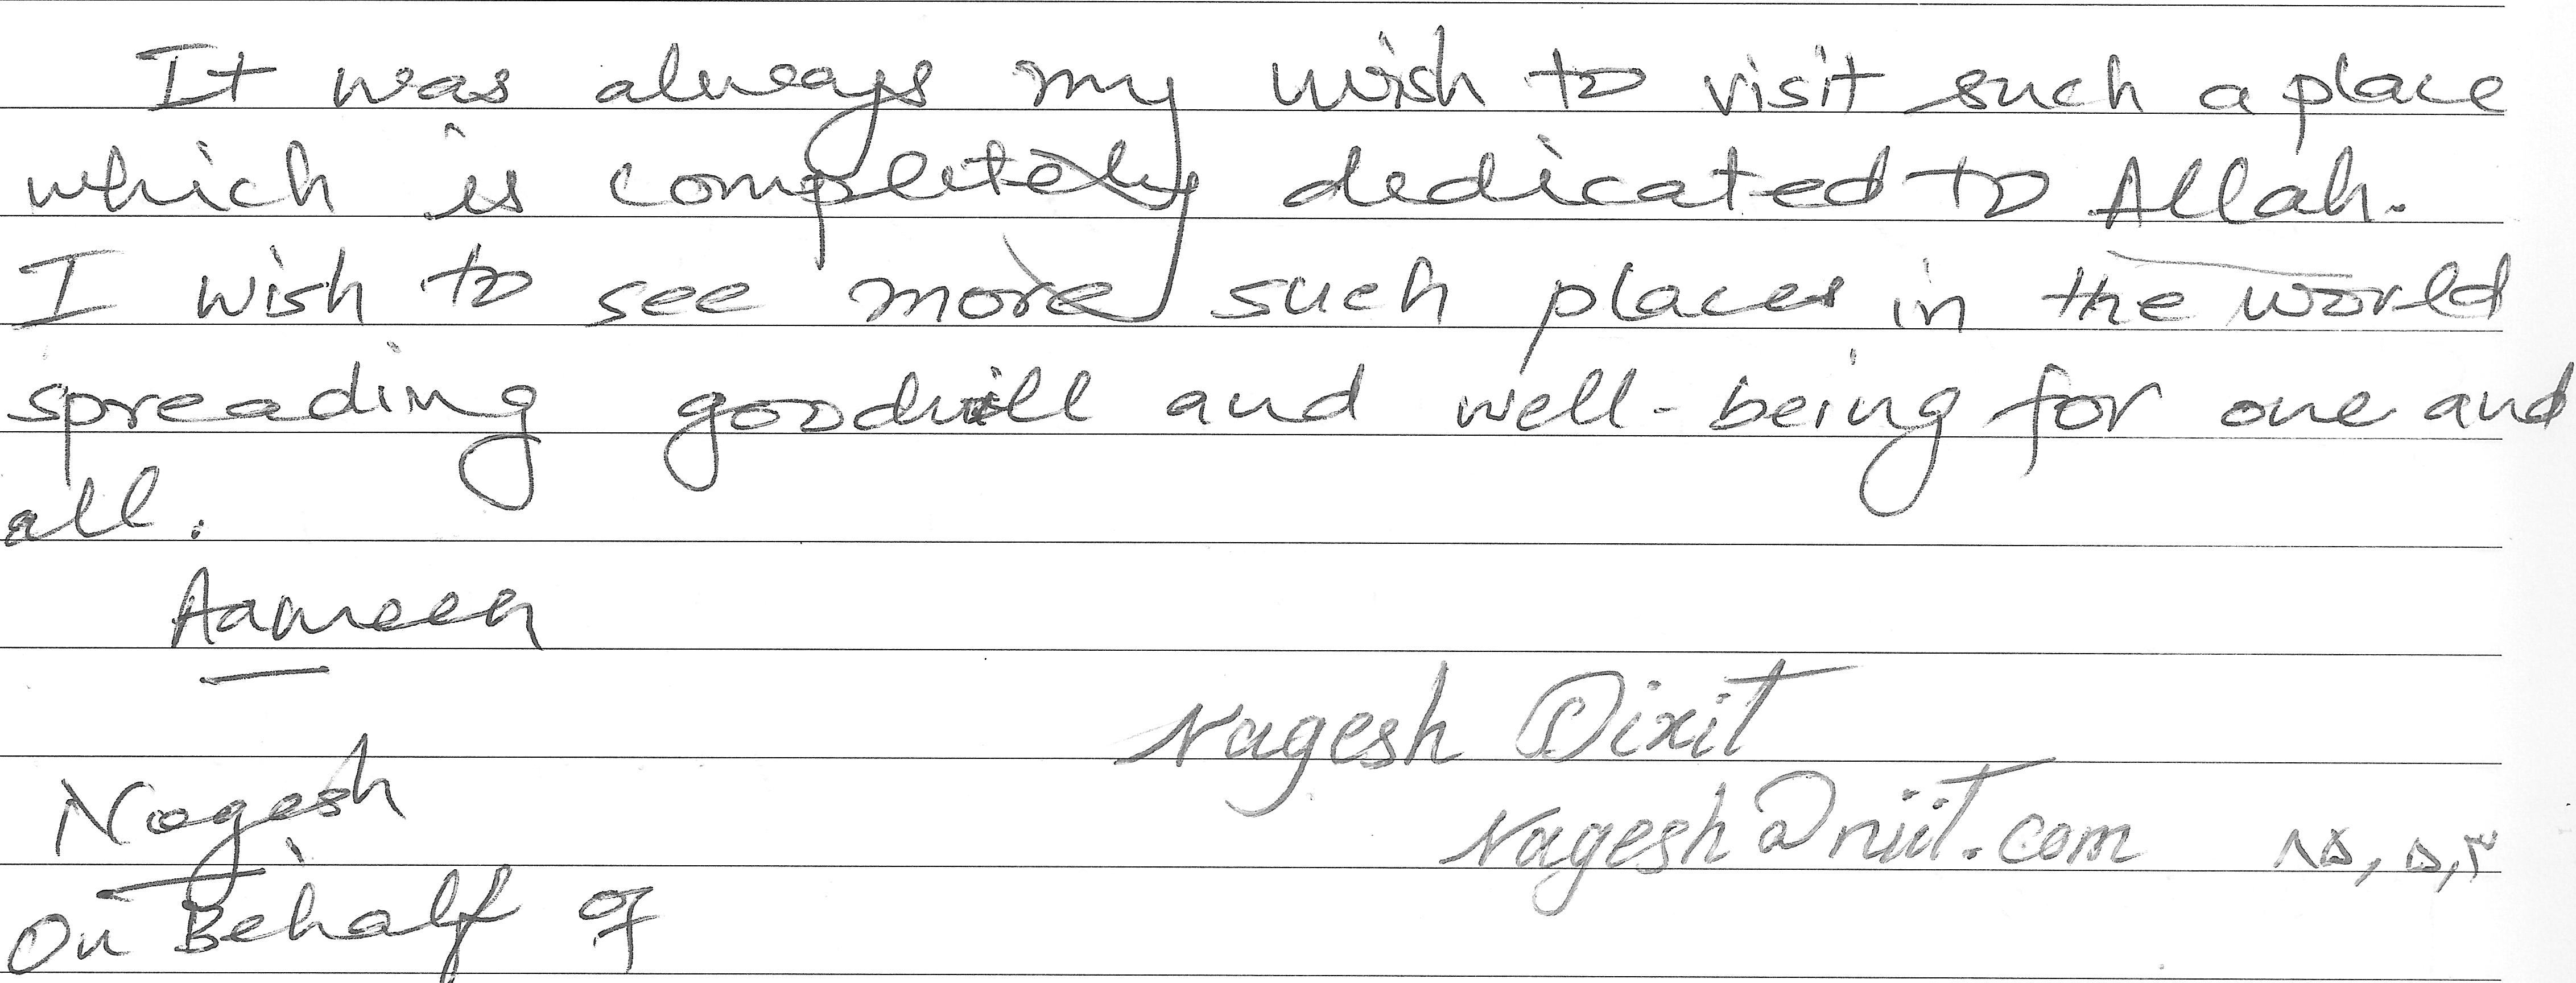 It was always my wish to visit such a place
which is completely dedicated to Allah.
I wish to see more such places in the world
spreading goodwill and well-being for one and
all.
Aameen
Nagesh Dixit
Nagesh
Nagesh@niit.com ۸۵,۵,۳
On Behalf of